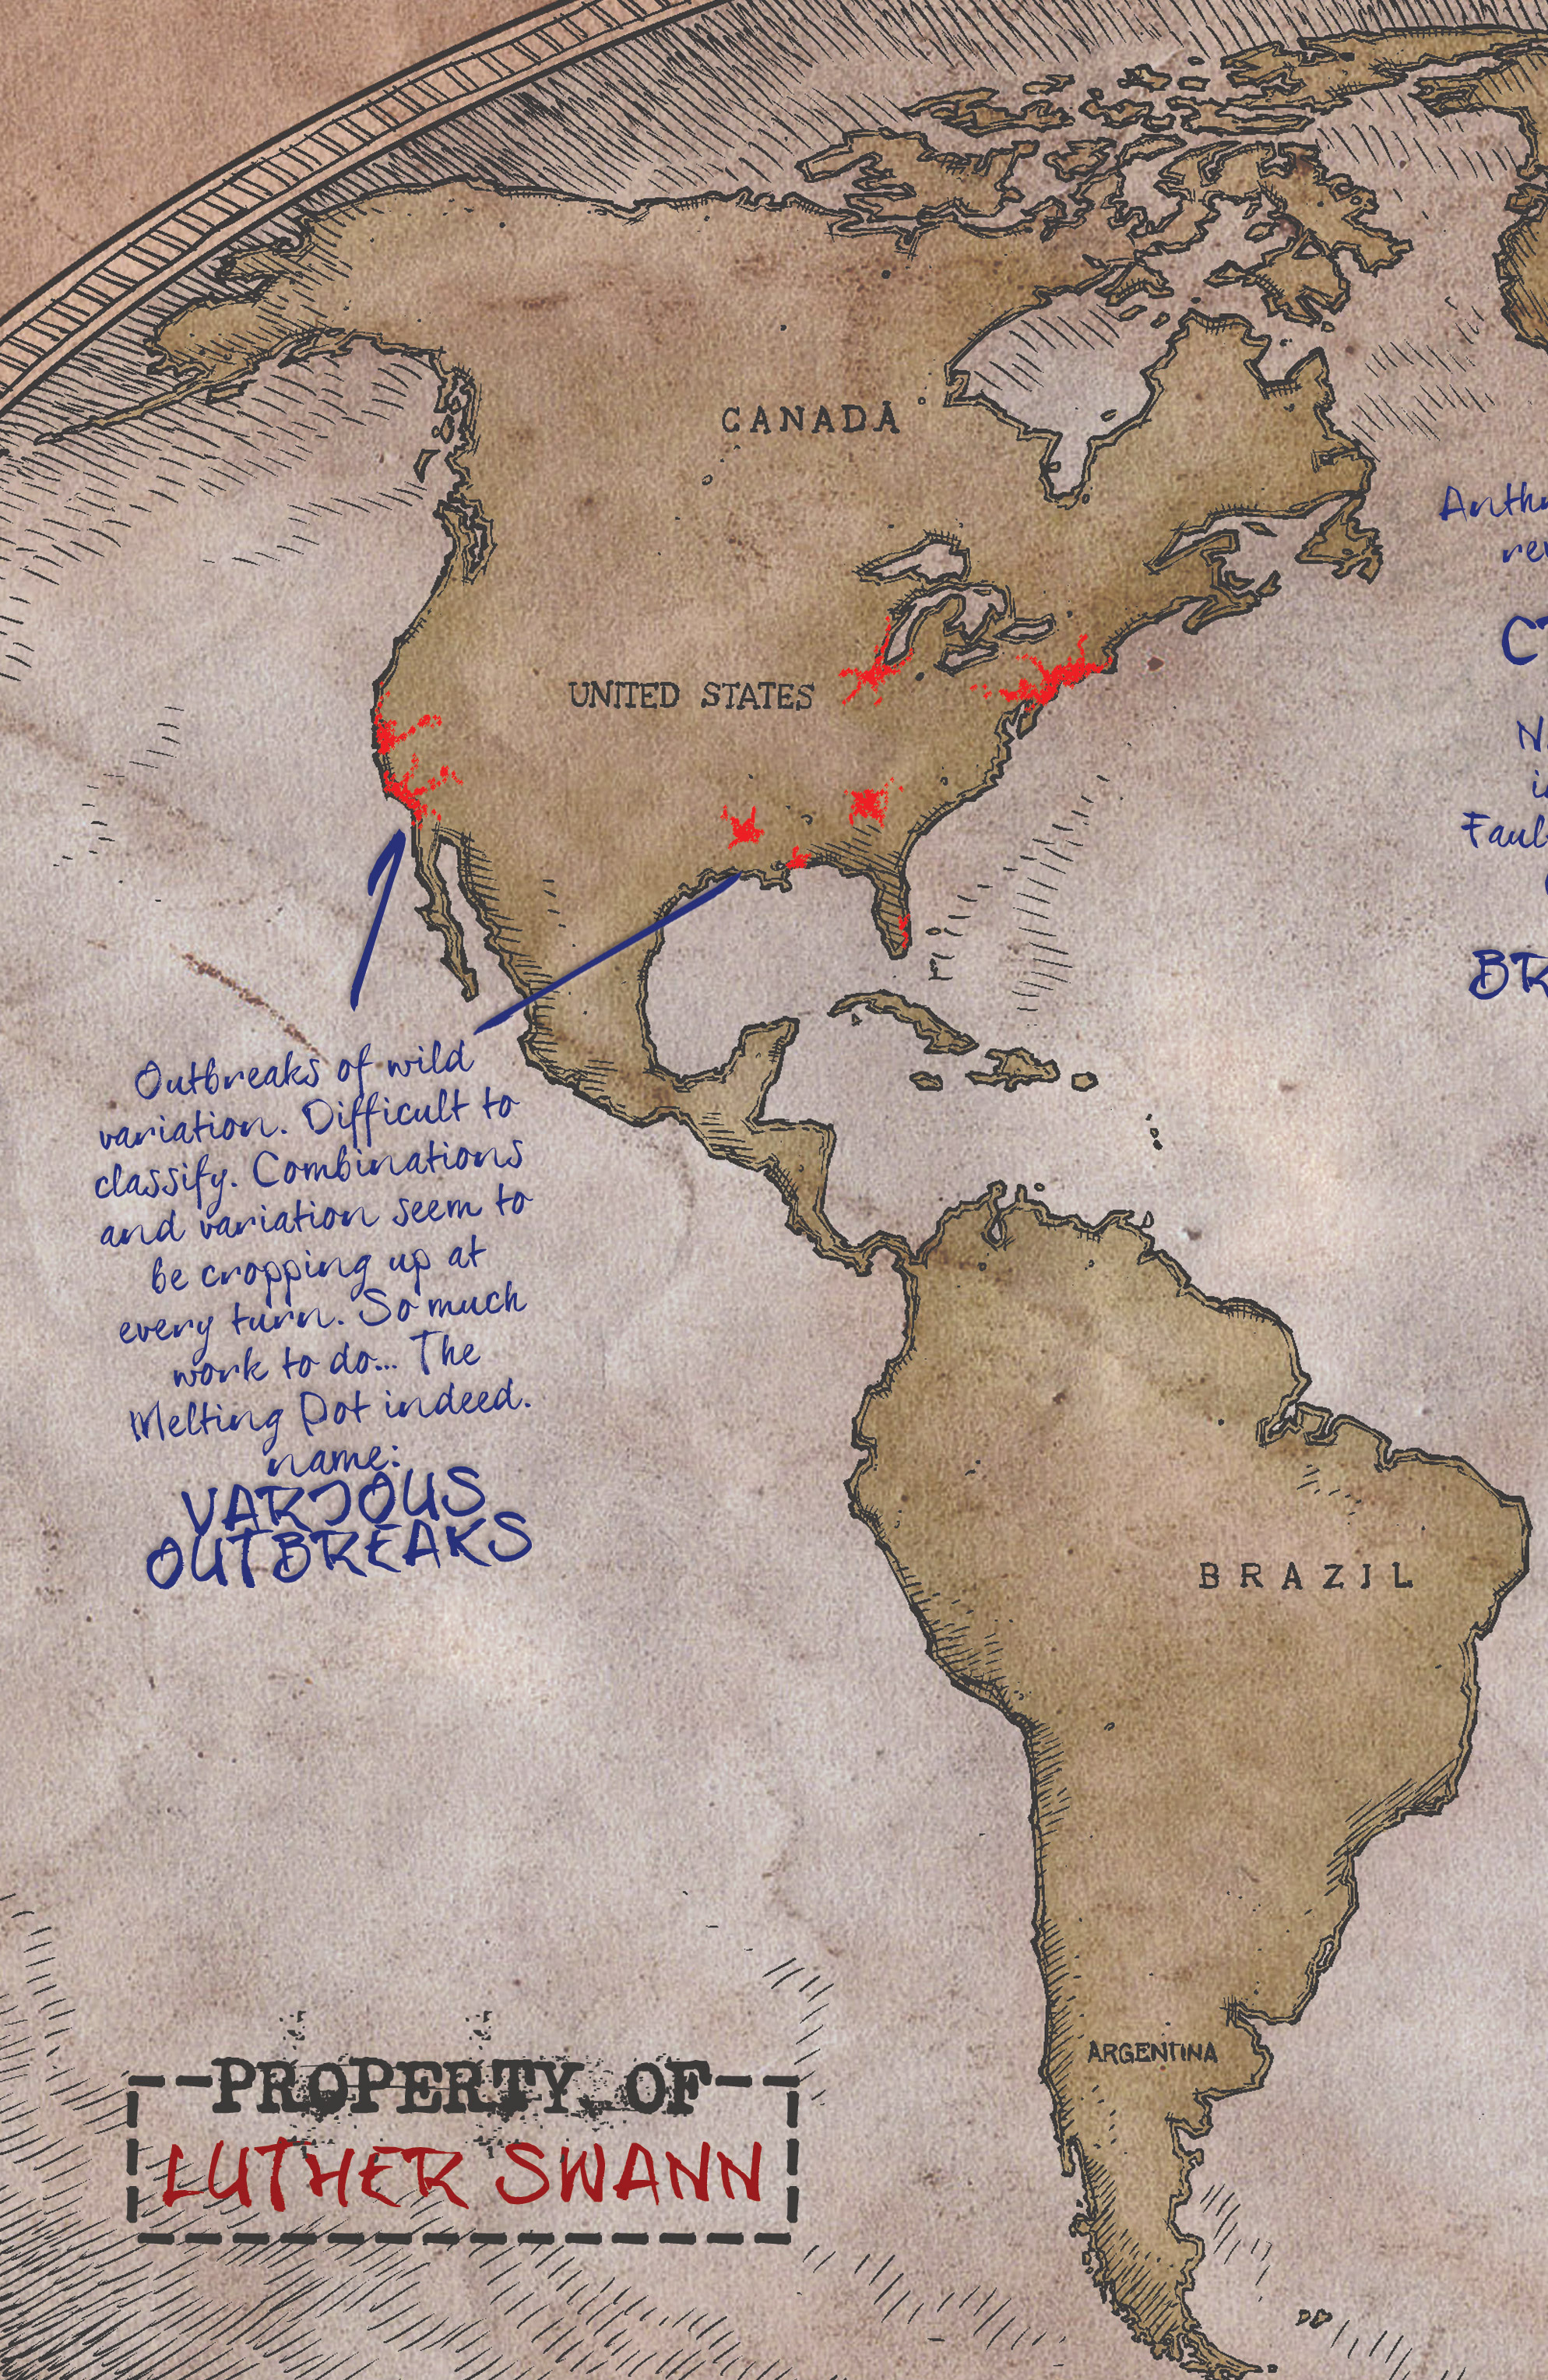 CANADA
UNITED STATES
Outbreaks of wild
variation. Difficult to
classify. Combinations
and variation seem to
be cropping up at
every turn. So much
work to do... The
Melting Pot indeed.
name:
VARIOUS
OUTBREAKS
BRAZIL
ARGENTINA
PROPERTY OF
LUTHER SWANN